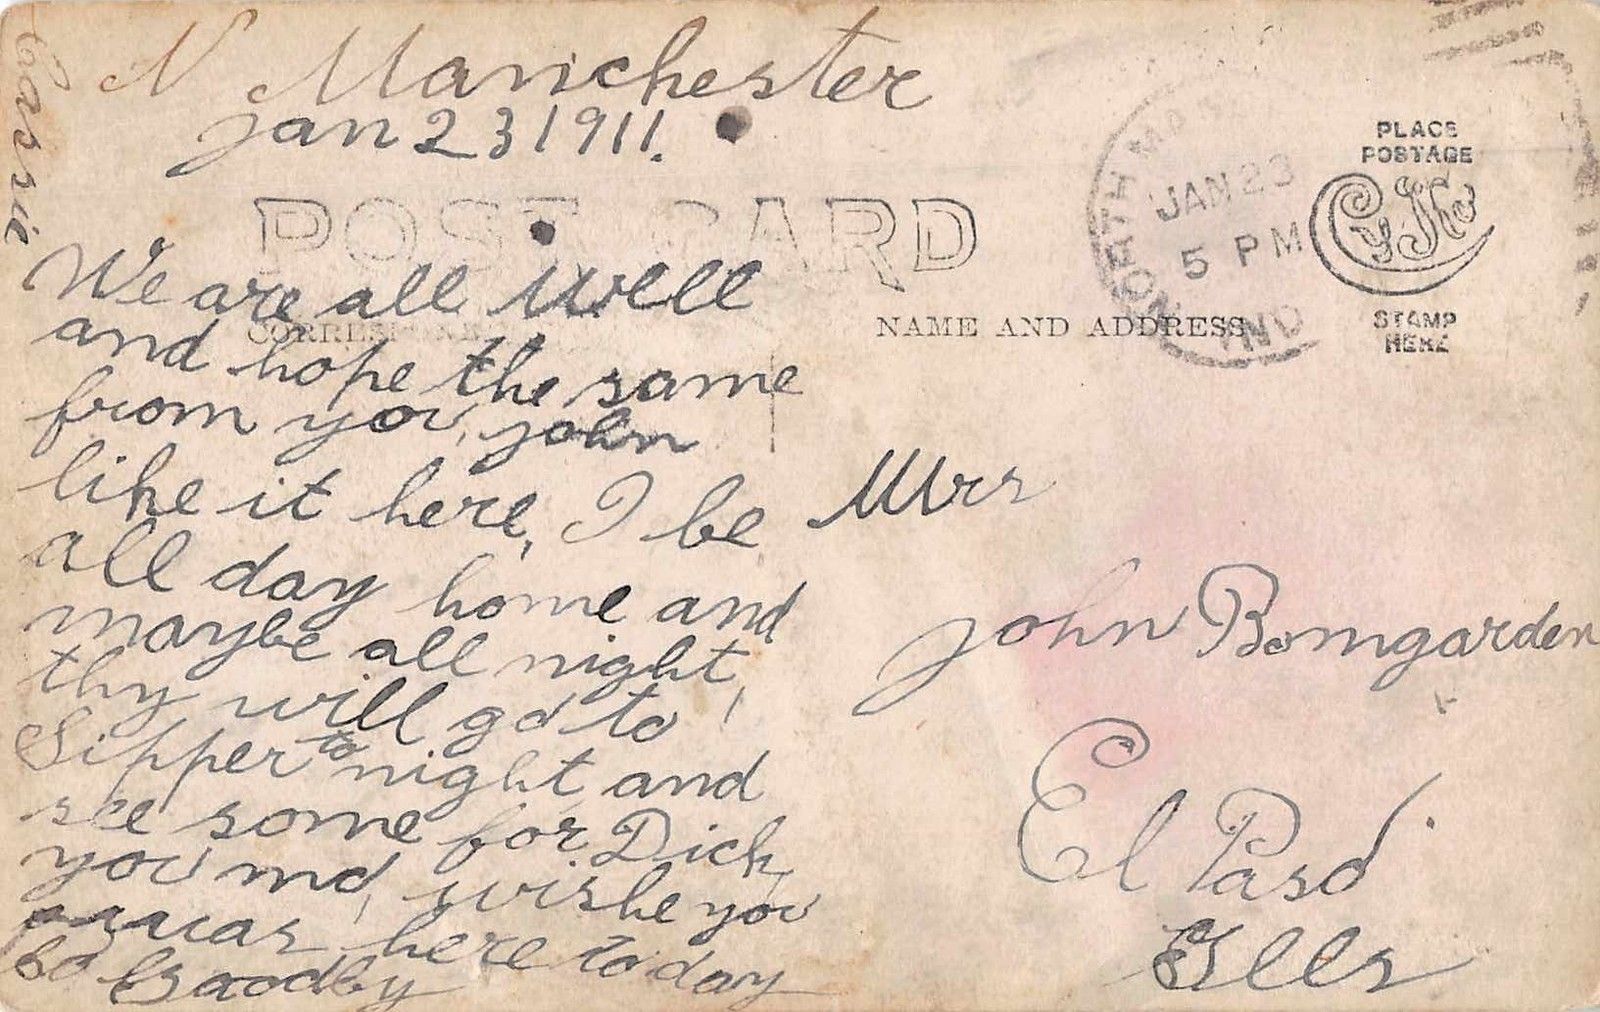 N Manchester
Jan 23 1911.
Cassie
POST CARD
We are all well
and hope the same
from you, john
like it here, I be
all day home and
maybe all night,
thy will go to
Sipper to night and
see some for Dick,
you md, wishe you
was here to day
Goodby
NORTH MA
JAN 23
5 PM
IND
PLACE
POSTAGE
CyKo
STAMP
HERE
NAME AND ADDRESS
Mrs
john Bomgarden
El Paso
Ills